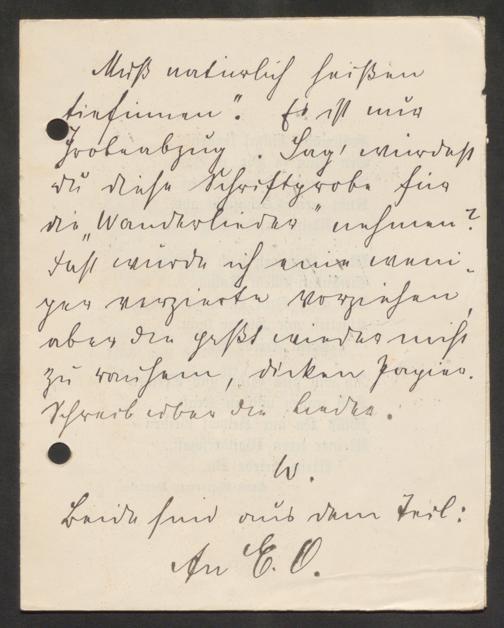 Muß natürlich heißen
tiefinnen". Es ist nur
Probeabzug. Sag' würdest
du diese Schriftprobe für
die „Wanderlieder" nehmen?
Fast würde ich eine weni-
ger verzierte vorziehen,
aber die paßt wieder nicht
zu rauhem, dicken Papier.
Schreib über die Lieder.
W.
Beide sind aus dem Teil:
An E. O.